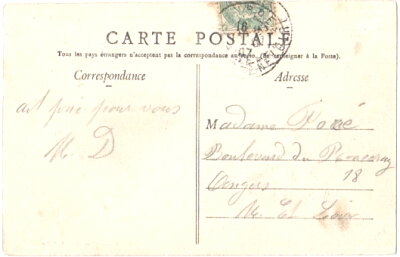 CARTE POSTALE
Tous les pays étrangers n'acceptent pas la correspondance au recto. (Se renseigner à la Poste).
Correspondance
pour vous
M. D
Adresse
Madame
Boulevard du
18
Angers
M. et Loire